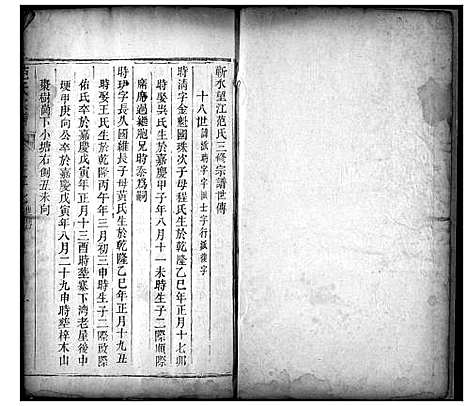 蘄水望江范氏三修宗譜世傳
十八世
時清字金魁國珠次子母程氏生於乾隆乙巳年正月十七卯
時娶吳氏生於嘉慶甲子年八月十一未時生子二際順際
席磨過繼胞兄時泰爲嗣
時玐字長久國維長子母黃氏生於乾隆乙巳年正月十九丑
時娶王氏生於乾隆丙午年三月初三申時生子二際政際
佑氏卒於嘉慶戊寅年正月十三酉時塟寨下湾老屋後中
埂甲庚向公卒於嘉慶戊寅年八月二十九申時塟梓木山
棗樹嶺下小塘右側丑未向